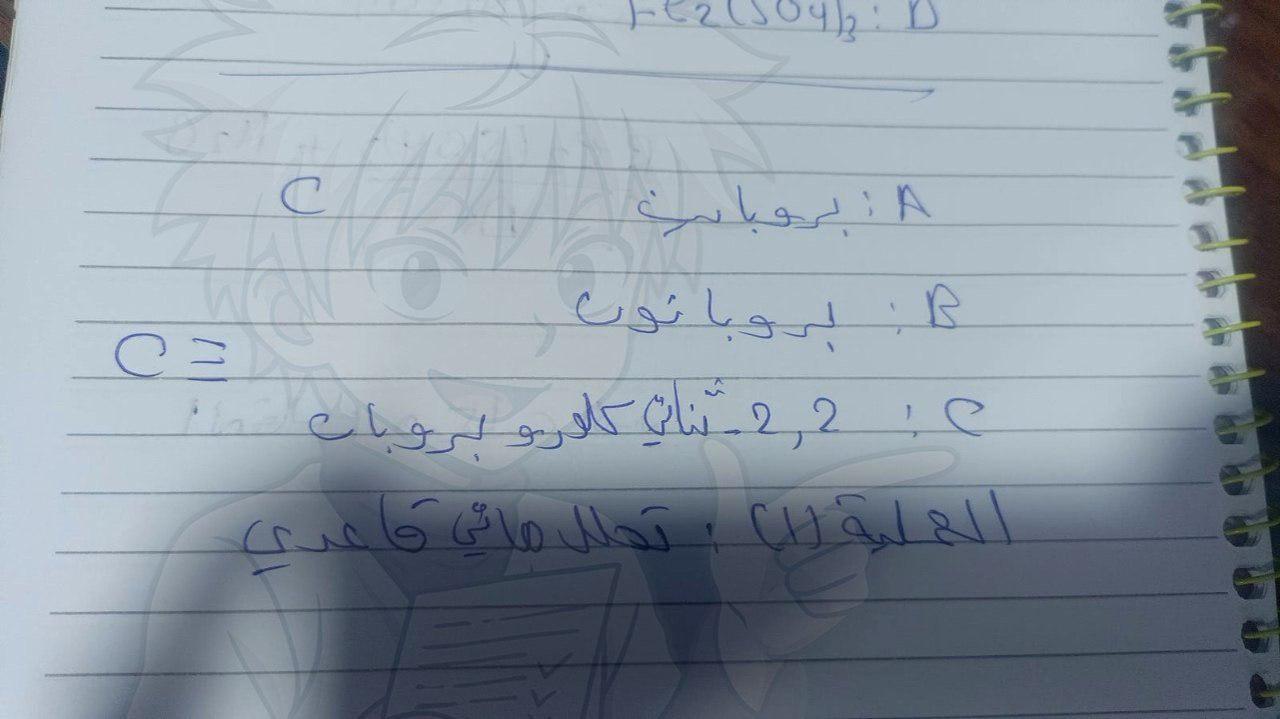 Fe2(SO4)3 : D
A : بروباين C
B : بروبانون
C ≡
C : 2,2 - ثنائي كلورو بروبان
العملية (1) : تحلل مائي قاعدي